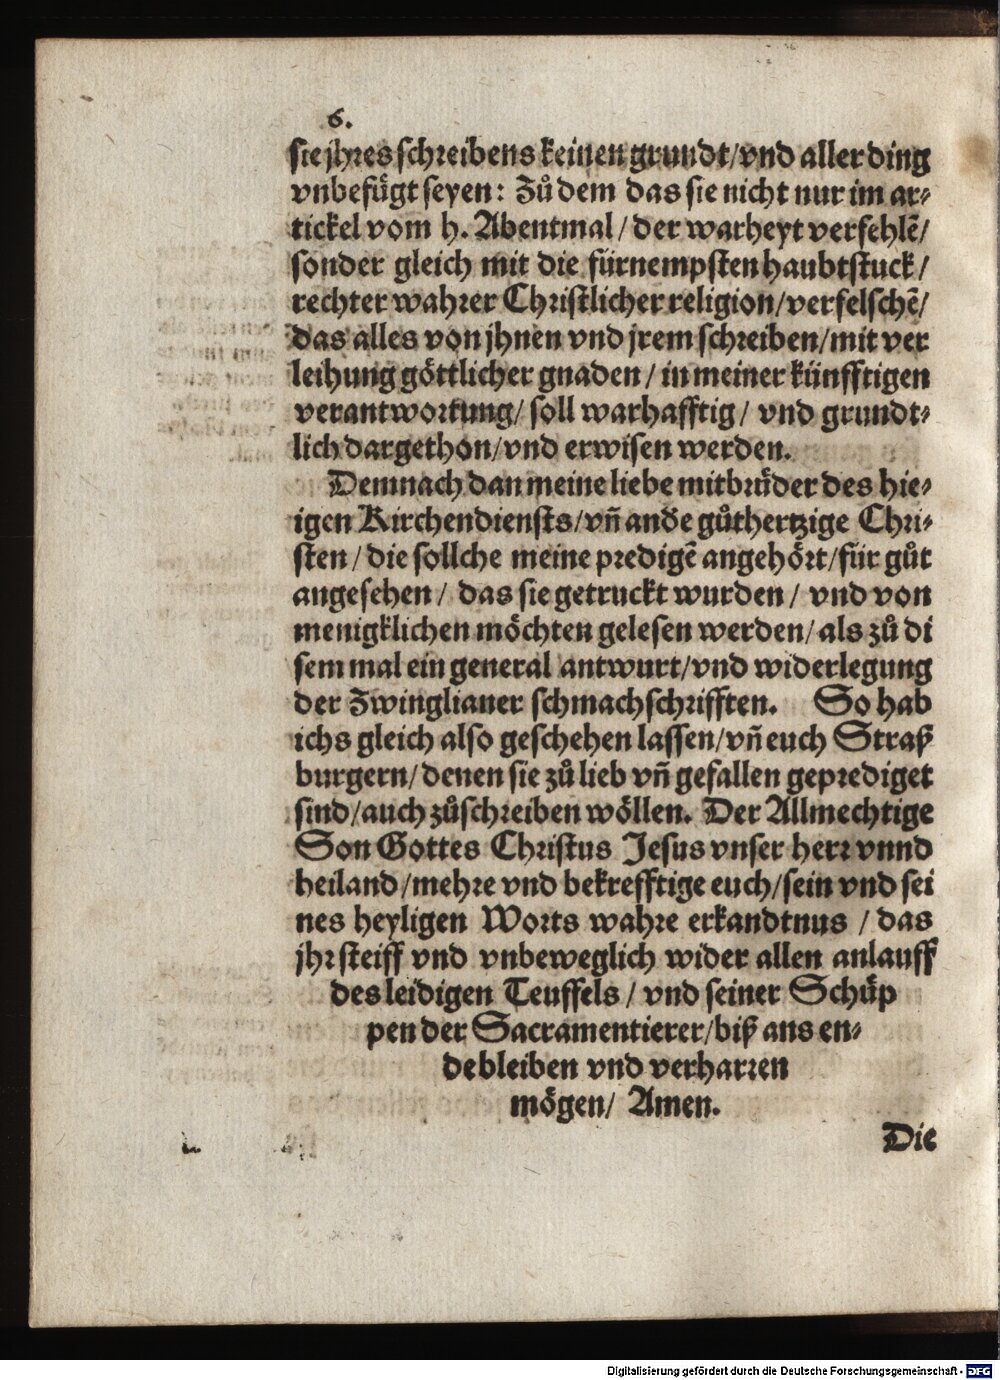 6.
sie jhres schreibens keinen grundt/vnd aller ding
vnbefuͤgt seyen: Zuͦ dem das sie nicht nur im ar⸗
tickel vom h. Abentmal/der warheyt verfehlē/
sonder gleich mit die fürnempsten haubtstuck/
rechter wahrer Christlicher religion/verfelschē/
das alles von jhnen vnd jrem schreiben/mit ver
leihung goͤttlicher gnaden/in meiner künfftigen
verantwortung/soll warhafftig/ vnd grundt⸗
lich dargethon/vnd erwisen werden.
Demnach dan meine liebe mitbruͤder des hie⸗
igen Kirchendiensts/vñ andere guͦthertzige Chri⸗
sten/die sollche meine predigē angehoͤrt/für guͦt
angesehen/ das sie getruckt wurden/ vnd von
menigklichen moͤchten gelesen werden/als zuͦ di
sem mal ein general antwurt/vnd widerlegung
der Zwinglianer schmachschrifften. So hab
ichs gleich also geschehen lassen/vñ euch Straß
burgern/denen sie zuͦ lieb vñ gefallen geprediget
sind/auch zuͦschreiben woͤllen. Der Allmechtige
Son Gottes Christus Jesus vnser herr vnnd
heiland/mehre vnd bekrefftige euch/sein vnd sei
nes heyligen Worts wahre erkandtnus /das
jhr steiff vnd vnbeweglich wider allen anlauff
des leidigen Teuffels/ vnd seiner Schuͤp
pen der Sacramentierer/biß ans en⸗
de bleiben vnd verharren
moͤgen/ Amen.
Die
Digitalisierung gefördert durch die Deutsche Forschungsgemeinschaft - DFG